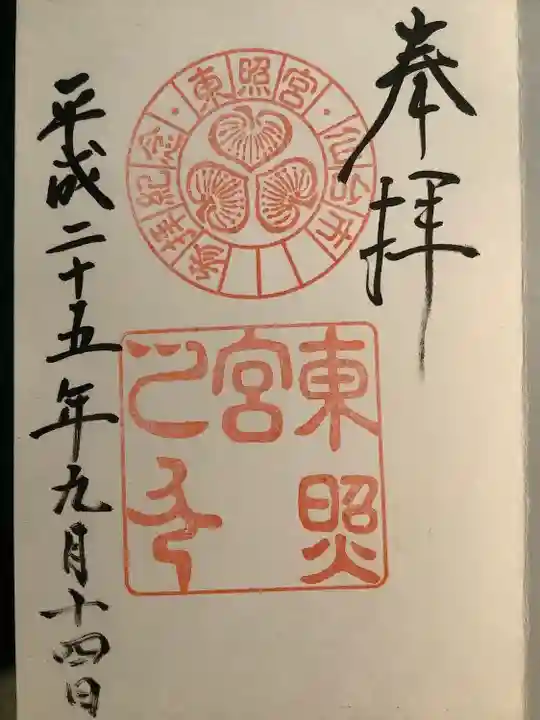 奉拝
東照宮・仙台市
参拝記念・
東照宮之印
平成二十五年九月十四日